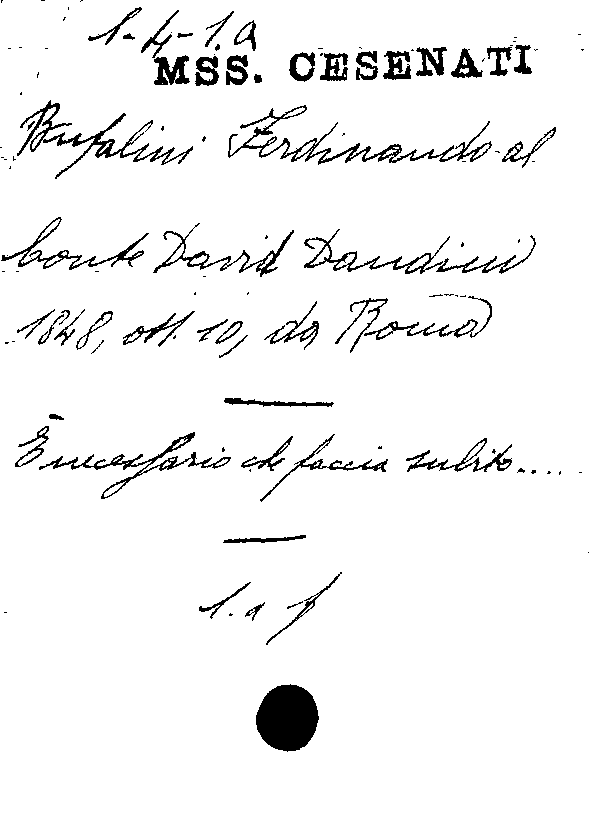 1-4-1.a
MSS. CESENATI
Bufalini Ferdinando al
Conte David Dandini
1848, ott. 10, da Roma
È necessario che faccia subito....
l. a f